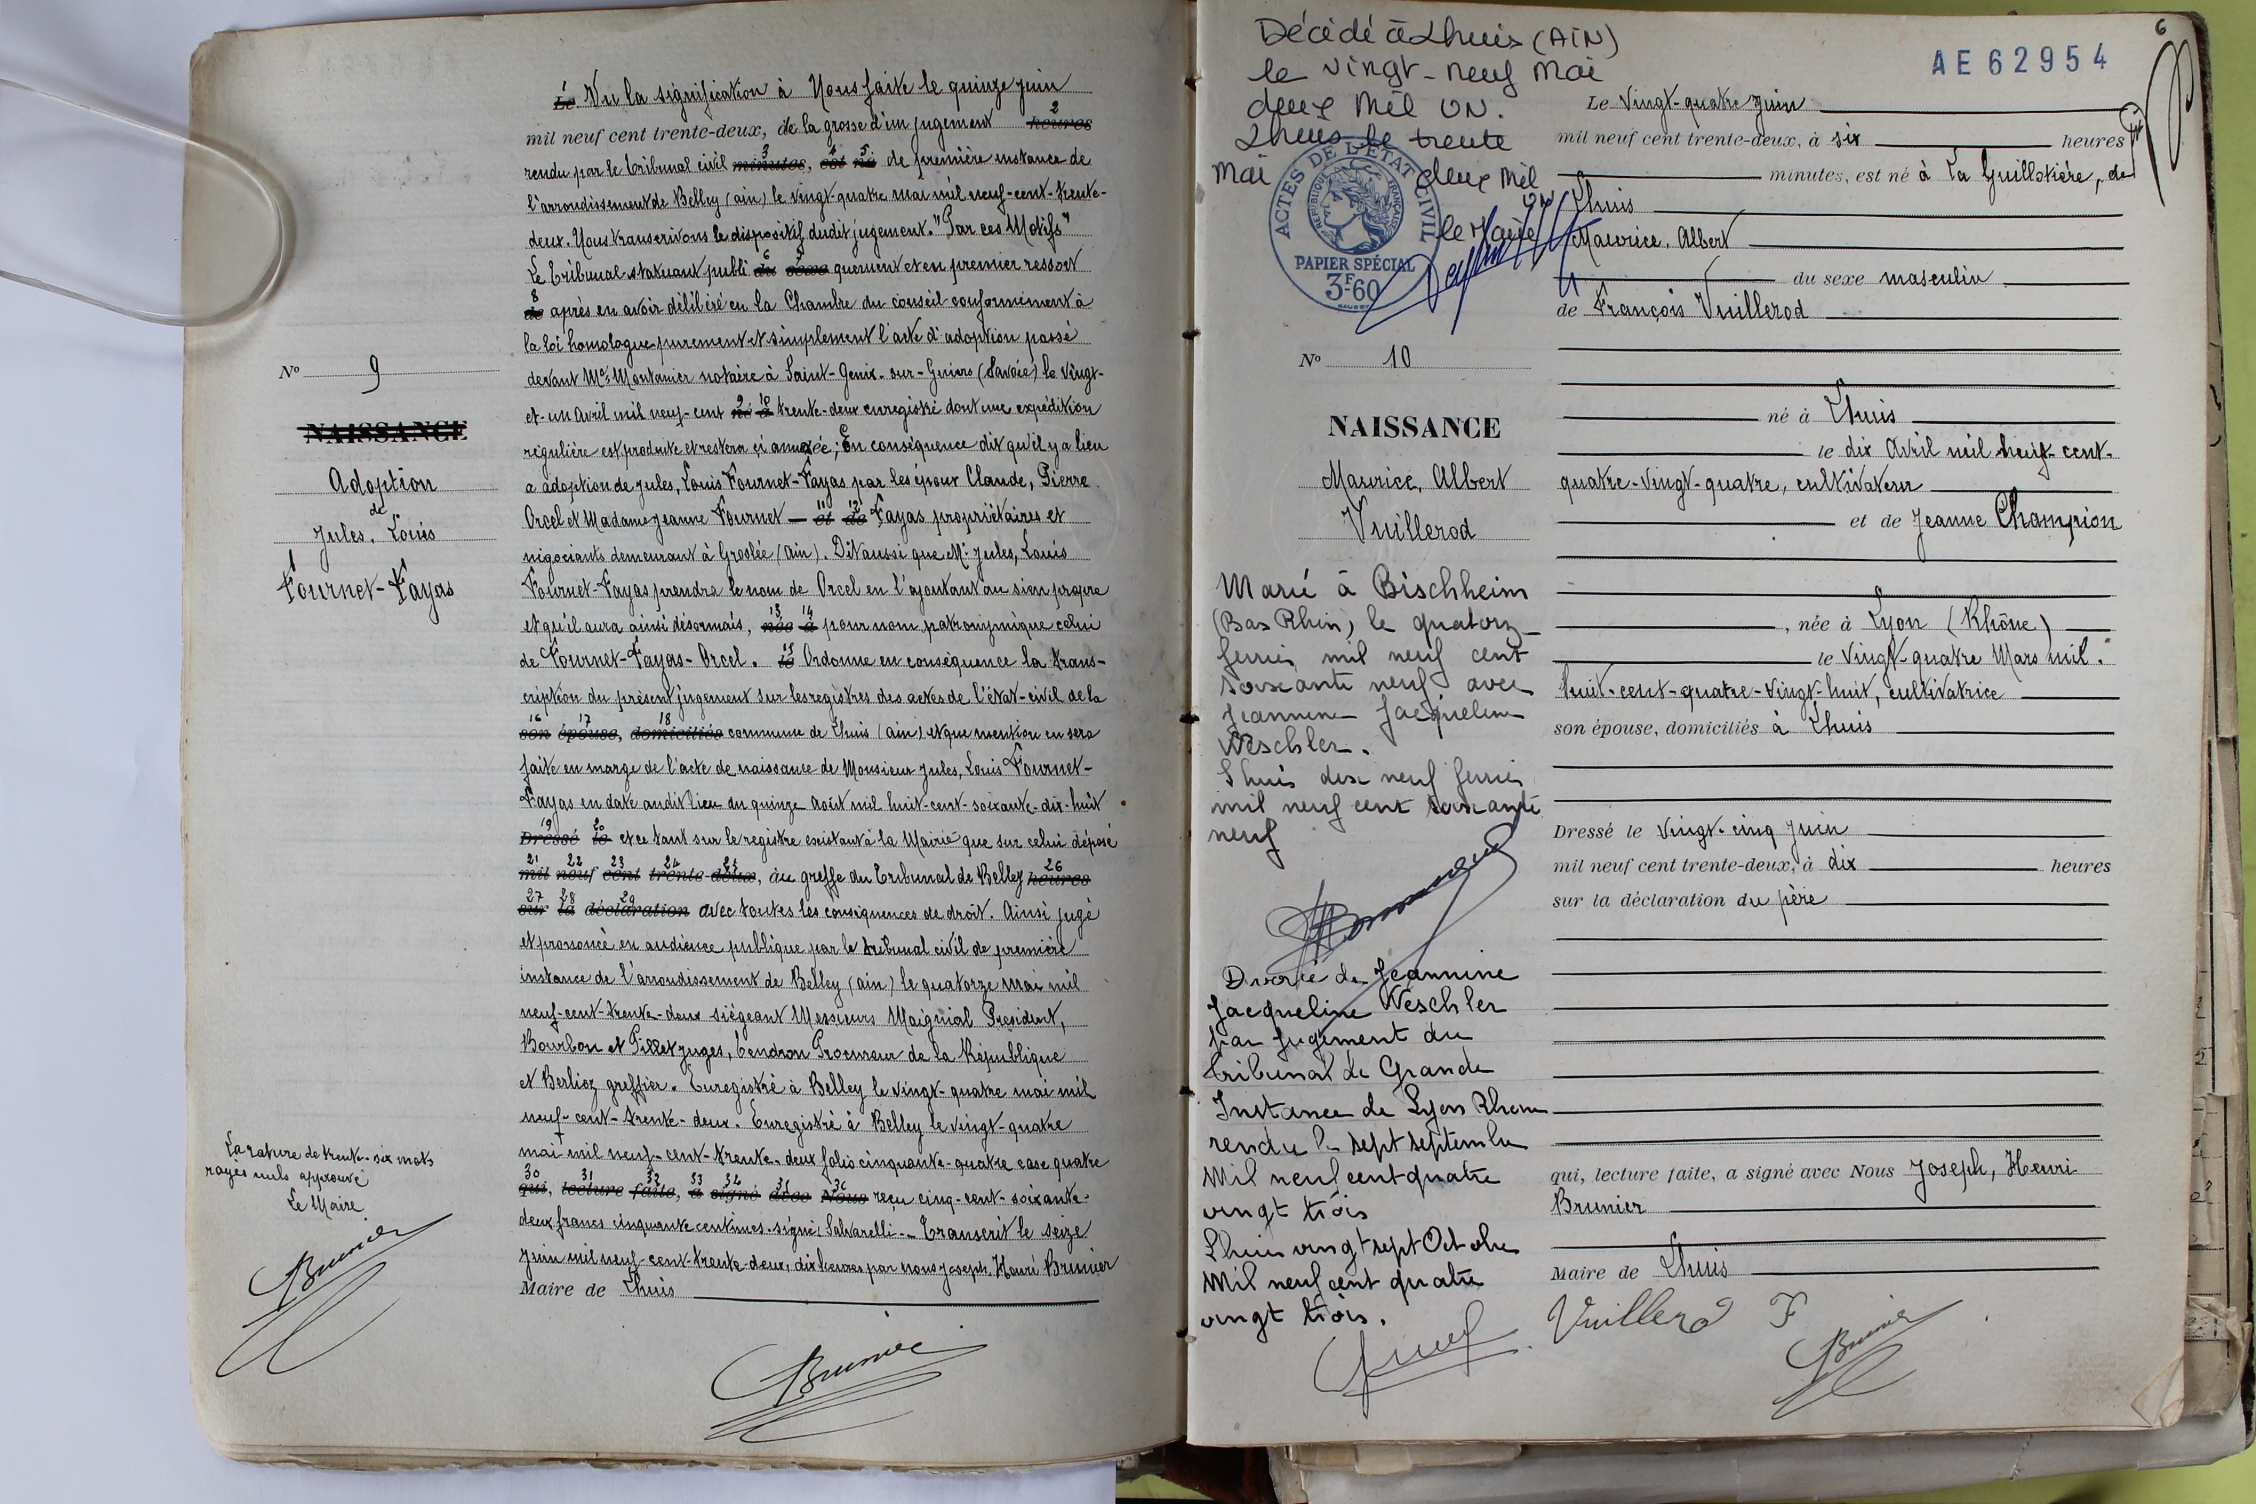 Le Vu la signification à Nous faite le quinze juin
2
mil neuf cent trente-deux, de la grosse d'un jugement heures
3 4 5
rendu par le tribunal civil minutes, est né de première instance de
l'arrondissement de Belley (ain) le vingt-quatre mai mil neuf-cent-trente-
deux. Nous transcrivons le dispositif dudit jugement. "Par ces Motifs"
6 7
Le Tribunal statuant publi du sexe quement et en premier ressort
8
de après en avoir délibéré en la Chambre du conseil conformément à
la loi homologue purement et simplement l'acte d'adoption passé
devant Me Montanier notaire à Saint-Genix-sur-Guiers (Savoie) le vingt-
9 10
et-un Avril mil neuf-cent né à trente-deux enregistré dont une expédition
régulière est produite et restera ci annexée; En conséquence dit qu'il y a lieu
a adoption de Jules, Louis Fournet-Fayas par les époux Claude, Pierre
11 12
Orcel et Madame Jeanne Fournet — et de Fayas propriétaires et
négociants demeurant à Groslée (ain). Dit aussi que Mr Jules, Louis
Fournet-Fayas prendra le nom de Orcel en l'ajoutant au sien propre
13 14
et qu'il aura ainsi désormais, née à pour nom patronymique celui
15
de Fournet-Fayas-Orcel. le Ordonne en conséquence la trans-
cription du présent jugement sur les registres des actes de l'état-civil de la
16 17 18
son épouse, domiciliés commune de Lhuis (ain) et que mention en sera
faite en marge de l'acte de naissance de Monsieur Jules, Louis Fournet-
Fayas en date audit lieu du quinze Août mil huit-cent-soixante-dix-huit
19 20
Dressé le et ce tant sur le registre existant à la Mairie que sur celui déposé
21 22 23 24 25 26
mil neuf cent trente-deux, au greffe du Tribunal de Belley heures
27 28 29
sur la déclaration avec toutes les conséquences de droit. Ainsi jugé
et prononcé en audience publique par le tribunal civil de première
instance de l'arrondissement de Belley (ain) le quatorze mai mil
neuf-cent-trente-deux siégeant Messieurs Maignial Président,
Bourbon et Pillet juges, Tendron Procureur de la République
et Berlioz greffier. Enregistré à Belley le vingt-quatre mai mil
neuf-cent-trente-deux. Enregistré à Belley le vingt-quatre
mai mil neuf-cent-trente-deux folio cinquante-quatre case quatre
30 31 32 33 34 35 36
qui, lecture faite, a signé avec Nous reçu cinq-cent-soixante-
deux francs cinquante centimes. signé: Salvarelli — Transcrit le seize
juin mil neuf-cent-trente-deux, dix heures par nous Joseph, Henri Brunier
Maire de Lhuis
Brunier
No 9
NAISSANCE
Adoption
de
Jules, Louis
Fournet-Fayas
La rature de trente-six mots
rayés nuls approuvé
Le Maire
Brunier
6
AE 62954
Décédé à Lhuis (AIN)
le vingt-neuf Mai
deux Mil UN.
Lhuis le trente
Mai deux Mil
UN
le Maire
ACTES DE L'ÉTAT CIVIL
RÉPUBLIQUE FRANÇAISE
PAPIER SPÉCIAL
3F.60
No 10
NAISSANCE
Maurice, Albert
Vuillerod
Marié à Bischheim
(Bas Rhin) le quatorz
fevrier mil neuf cent
soixante neuf avec
Jeannine Jacqueline
Weschler.
Lhuis dix neuf fevrier
mil neuf cent soixante
neuf
Divorcé de Jeannine
Jacqueline Weschler
par jugement du
Tribunal de Grande
Instance de Lyon Rhone
rendu le sept septembre
Mil neuf cent quatre
vingt trois
Lhuis vingt sept Octobre
Mil neuf cent quatre
vingt trois.
Le Vingt-quatre Juin
mil neuf cent trente-deux, à six heures
minutes, est né à La Guillotière, de
Lhuis
Maurice, Albert
du sexe masculin
de François Vuillerod
né à Lhuis
le dix Avril mil huit-cent-
quatre-vingt-quatre, cultivateur
et de Jeanne Champion
, née à Lyon (Rhône)
le Vingt-quatre Mars mil-
huit-cent-quatre-vingt-huit, cultivatrice
son épouse, domiciliés à Lhuis
Dressé le Vingt-cinq Juin
mil neuf cent trente-deux, à dix heures
sur la déclaration du père
qui, lecture faite, a signé avec Nous Joseph, Henri
Brunier
Maire de Lhuis
Vuillerod F
Brunier